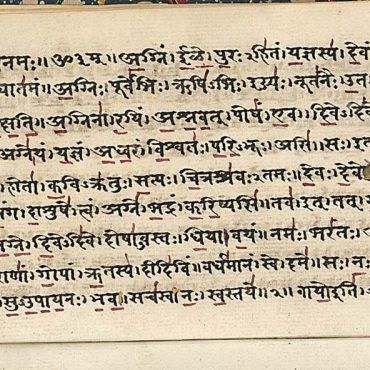 नमः॥ॐ३म्॥अग्निं।ईळे।पुरःऽहितं।यज्ञस्य।देवं
धातमं॥अग्निः।पूर्वेभिः।ऋषिऽभिः।ईड्यः।नूतनैः।उत
क्षति॥अग्निना।रयिं।अश्नवत्।पोषं।एव।दिवेऽदिवे
अग्ने।यं।यज्ञं।अध्वरं।विश्वतः।परिऽभूः।असि॥सः।इत्
होता।कविऽक्रतुः।सत्यः।चित्रश्रवःऽतमः॥देवः।देवे
अंग।दाशुषे।त्वं।अग्ने।भद्रं।करिष्यसि॥तव।इत्।तत्।
अग्ने।दिवेऽदिवे।दोषाऽवस्तः।धिया।वयं।नमः।भरंतः
राणां।गोपां।ऋतस्य।दीदिविं।वर्धमानं।स्वे।दमे॥सः।नः
सुऽउपायनः।भव।सचस्व।नः।स्वस्तये॥२॥वायोइति